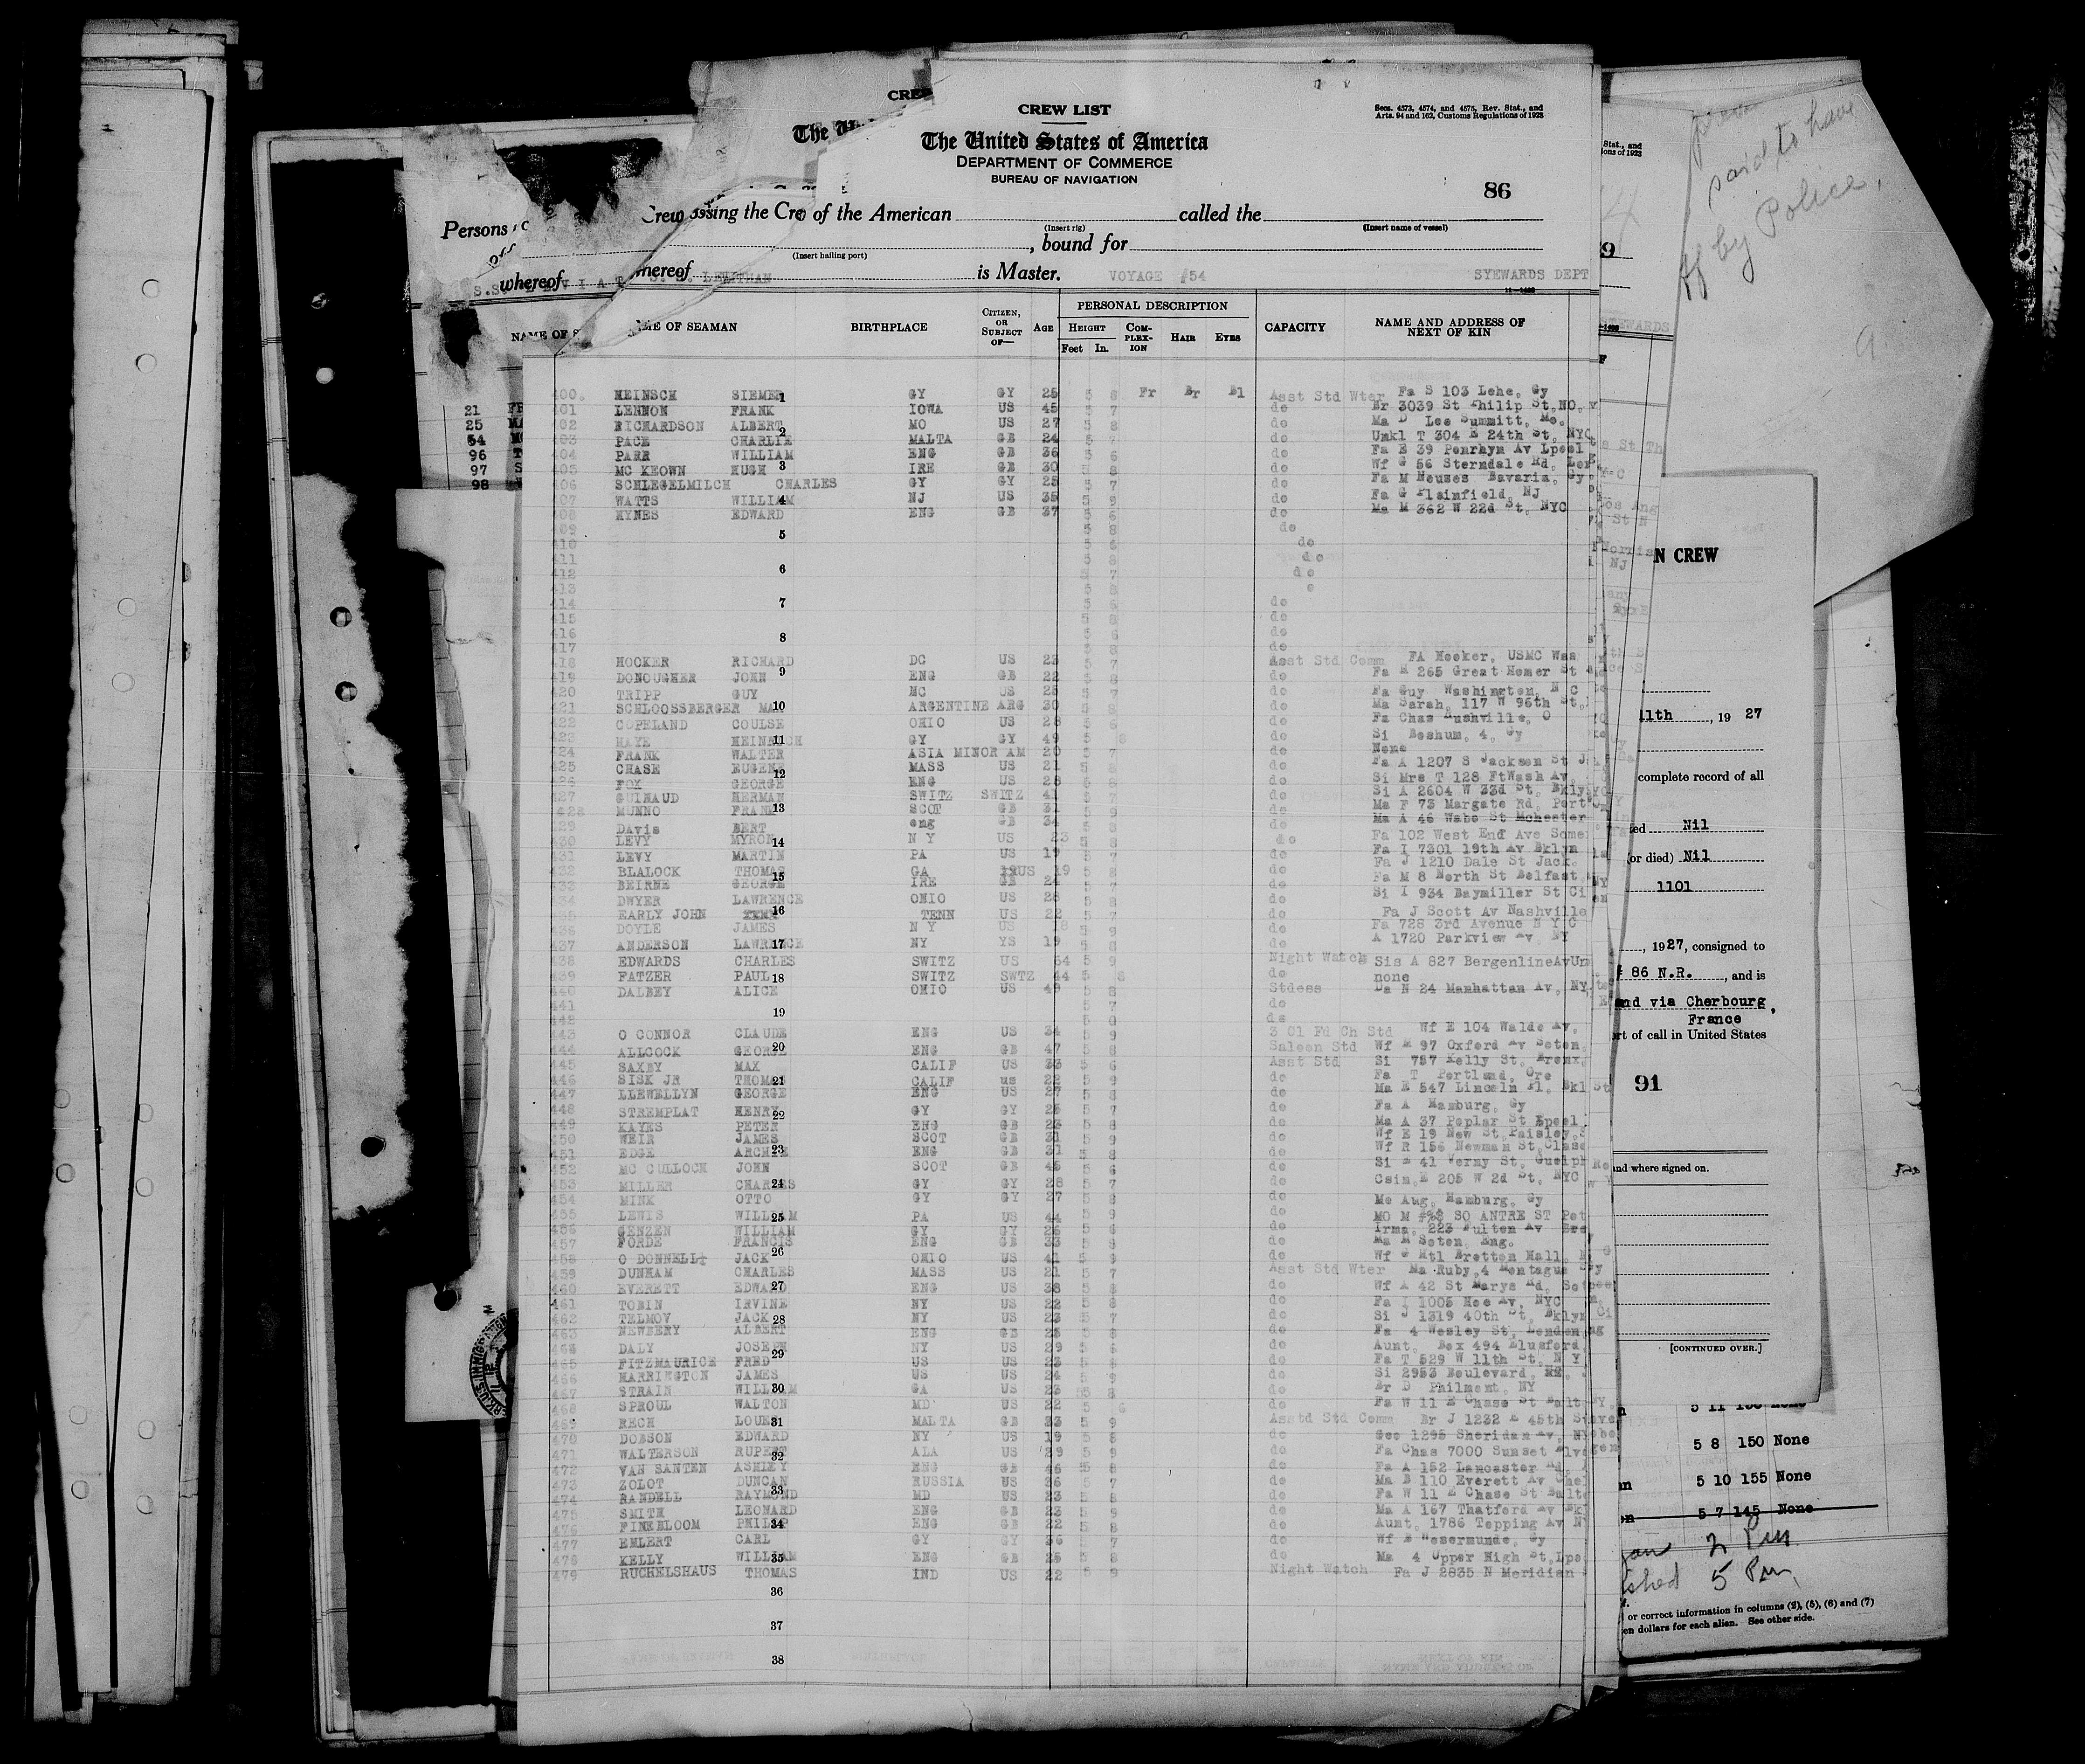 CREW LIST
Secs. 4573, 4574, and 4575, Rev. Stat., and
Arts. 94 and 162, Customs Regulations of 1923
The United States of America
DEPARTMENT OF COMMERCE
BUREAU OF NAVIGATION
86
of the American called the
(Insert rig) (Insert name of vessel)
, bound for
(Insert hailing port)
whereof is Master. VOYAGE #54 SYEWARDS DEPT
NAME OF SEAMAN BIRTHPLACE CITIZEN, OR SUBJECT OF— AGE PERSONAL DESCRIPTION CAPACITY NAME AND ADDRESS OF NEXT OF KIN
HEIGHT Feet In. COMPLEXION HAIR EYES
400. HEINSCH SIEMER GY GY 25 5 8 Fr Br Bl Asst Std Wter Fa S 103 Lehe, Gy
401 LENNON FRANK IOWA US 45 5 7 do Br 3039 St Philip St, NO,
402 RICHARDSON ALBERT MO US 27 5 8 do Ma D Lee Summitt, Mo.
403 PACE CHARLIE MALTA GB 24 5 7 do Unkl T 304 E 24th St, NYC
404 PARR WILLIAM ENG GB 36 5 6 do Fa E 39 Penrhyn Av Lpool
405 MC KEOWN HUGH IRE GB 30 5 8 do Wf G 56 Sterndale Rd,
406 SCHLEGELMILCH CHARLES GY GY 25 5 7 do Fa M Neuses Bavaria, Gy
407 WATTS WILLIAM NJ US 35 5 9 do Fa G Plainfield, NJ
408 HYNES EDWARD ENG GB 37 5 6 do Ma M 362 W 22d St, NYC
409 5 8 do
410 5 6 do
411 5 8 do
412 5 7 do
413 5 8
414 5 6 do
415 5 8 do
416 5 6 do
417 5 8 do
418 HOCKER RICHARD DC US 23 5 7 Asst Std Comm FA Hocker, USMC Was
419 DONOUGHER JOHN ENG GB 22 5 8 do Fa M 265 Great Homer St
420 TRIPP GUY MC US 25 5 7 do Fa Guy Washington, N C
421 SCHLOOSSBERGER MAX ARGENTINE ARG 30 5 8 do Ma Sarah, 117 W 96th St.
422 COPELAND COULSE OHIO US 28 5 6 do Fa Chas Rushville, O
423 MAYE HEINRICH GY GY 49 5 8 do Si Boshum, 4, Gy
424 FRANK WALTER ASIA MINOR AM 20 5 7 do None
425 CHASE EUGENE MASS US 21 5 8 do Fa A 1207 S Jackson St
426 FOX GEORGE ENG US 28 5 8 do Si Mrs T 128 FtWash Av,
427 GUINAUD HERMAN SWITZ SWITZ 41 5 7 do Si A 2604 W 33d St, Bkly
428 MUNNO FRANK SCOT GB 31 5 9 do Ma F 73 Margate Rd, Port
429 DAvis BERT eng GB 34 5 8 do Ma A 46 Wabo St Mchester
430 LEVY MYRON N Y US 23 5 8 do Fa 102 West End Ave Some
431 LEVY MARTIN PA US 19 5 7 do Fa I 7301 19th Av Bklyn
432 BLALOCK THOMAS GA US 19 5 8 do Fa J 1210 Dale St Jack.
433 BEIRNE GEORGE IRE GB 24 5 7 do Fa M 8 North St Belfast
434 DWYER LAWRENCE OHIO US 26 5 8 do Si I 934 Baymiller St Ci
435 EARLY JOHN TENN US 22 5 7 do Fa J Scott Av Nashville
436 DOYLE JAMES N Y US 18 5 9 do Fa 728 3rd Avenue N Y C
437 ANDERSON LAWRENCE NY YS 19 5 8 do A 1720 Parkview Av, NY
438 EDWARDS CHARLES SWITZ US 54 5 9 Night Watch Sis A 827 BergenlineAvUn
439 FATZER PAUL SWITZ SWTZ 44 5 8 do none
440 DALBEY ALICE OHIO US 49 5 8 Stdess Da N 24 Manhattan Av, NY
441 5 7 do
442 5 8 do
443 O CONNOR CLAUDE ENG US 34 5 9 3 Cl Fd Ch Std Wf E 104 Waldo Av,
444 ALLCOCK GEORGE ENG GB 47 5 8 Saloon Std Wf M 97 Oxford Av Soton,
445 SAXBY MAX CALIF US 33 5 6 Asst Std Si 757 Kelly St, Bronx,
446 SISK JR THOMAS CALIF us 22 5 9 do Fa T Portland, Ore
447 LLEWELLYN GEORGE ENG US 27 5 8 do Ma E 547 Lincoln Pl, Bkl
448 STREMPLAT HENRY GY GY 25 5 7 do Fa A Hamburg, Gy
449 KAYES PETER ENG GB 23 5 8 do Ma A 37 Poplar St Lpool
450 WEIR JAMES SCOT GB 31 5 9 do Wf E 19 New St, Paisley,
451 EDGE ARCHIE ENG GB 31 5 8 do Wf R 156 Newman St,
452 MC CULLOCH JOHN SCOT GB 45 5 6 do Si 41 Verny St, Guelph
453 MILLER CHARLES GY GY 28 5 7 do Csin, E 205 W 2d St, NYC
454 MINK OTTO GY GY 27 5 8 do Mo Aug, Hamburg, Gy
455 LEWIS WILLIAM PA US 44 5 9 do MO M SO ANTRE ST Pet
456 GENZEN WILLIAM GY GY 26 5 6 do Irma, 223 Fulton Av
457 FORDE FRANCIS ENG GB 33 5 9 do Ma M Soton, Eng.
458 O DONNELL JACK OHIO US 41 5 8 do Wf Htl Bretton Hall,
459 DUNHAM CHARLES MASS US 21 5 7 Asst Std Wter Ma Ruby, 4 Montague
460 EVERETT EDWARD ENG US 38 5 8 do Wf A 42 St Marys Rd,
461 TOBIN IRVINE NY US 22 5 8 do Fa I 1005 Hoe Av, NYC
462 TELMOV JACK NY US 23 5 7 do Si J 1319 40th St, Bklyn
463 NEWBERY ALBERT ENG GB 25 5 8 do Fa 4 Wesley St, London
464 DALY JOSEPH NY US 29 5 6 do Aunt, Box 494 Elmsford
465 FITZMAURICE FRED US US 23 5 8 do Fa T 529 W 11th St, N Y
466 HARRINGTON JAMES US US 24 5 9 do Si 2953 Boulevard,
467 STRAIN WILLIAM GA US 23 5 8 do Br D Philmont, NY
468 SPROUL WALTON MD US 22 5 6 do Fa W 11 E Chase St Balt
469 RECH LOUE MALTA GB 33 5 9 Asstd Std Comm Br J 1232 E 45th S
470 DOBSON EDWARD NY US 19 5 8 do Geo 1295 Sheridan Av,
471 WALTERSON RUPERT ALA US 29 5 9 do Fa Chas 7000 Sunset Blv
472 VAN SANTEN ASHLEY ENG GB 46 5 8 do Fa A 152 Lancaster Rd,
473 ZOLOT DUNCAN RUSSIA US 26 5 7 do Ma B 110 Everett Av Chel
474 RANDELL RAYMOND MD US 23 5 8 do Fa W 11 E Chase St Balto
475 SMITH LEONARD ENG GB 23 5 9 do Ma A 167 Thatford Av Bkl
476 FINEBLOOM PHILIP ENG GB 22 5 8 do Aunt, 1786 Topping Av N
477 EHLERT CARL GY GY 36 5 7 do Wf Wesermunde, Gy
478 KELLY WILLIAM ENG GB 25 5 8 do Ma 4 Upper High St, Lpo
479 RUCKELSHAUS THOMAS IND US 22 5 9 Night Watch Fa J 2835 N Meridian
36
37
38
said to have
by Police.
N CREW
11th, 19 27
complete record of all
Nil
(or died) Nil
1101
, 1927, consigned to
86 N.R., and is
and via Cherbourg,
France
rt of call in United States
91
and where signed on.
[CONTINUED OVER.]
5 8 150 None
5 10 155 None
5 7 145 None
2 Pm
5 Pm
or correct information in columns (2), (5), (6) and (7)
en dollars for each alien. See other side.